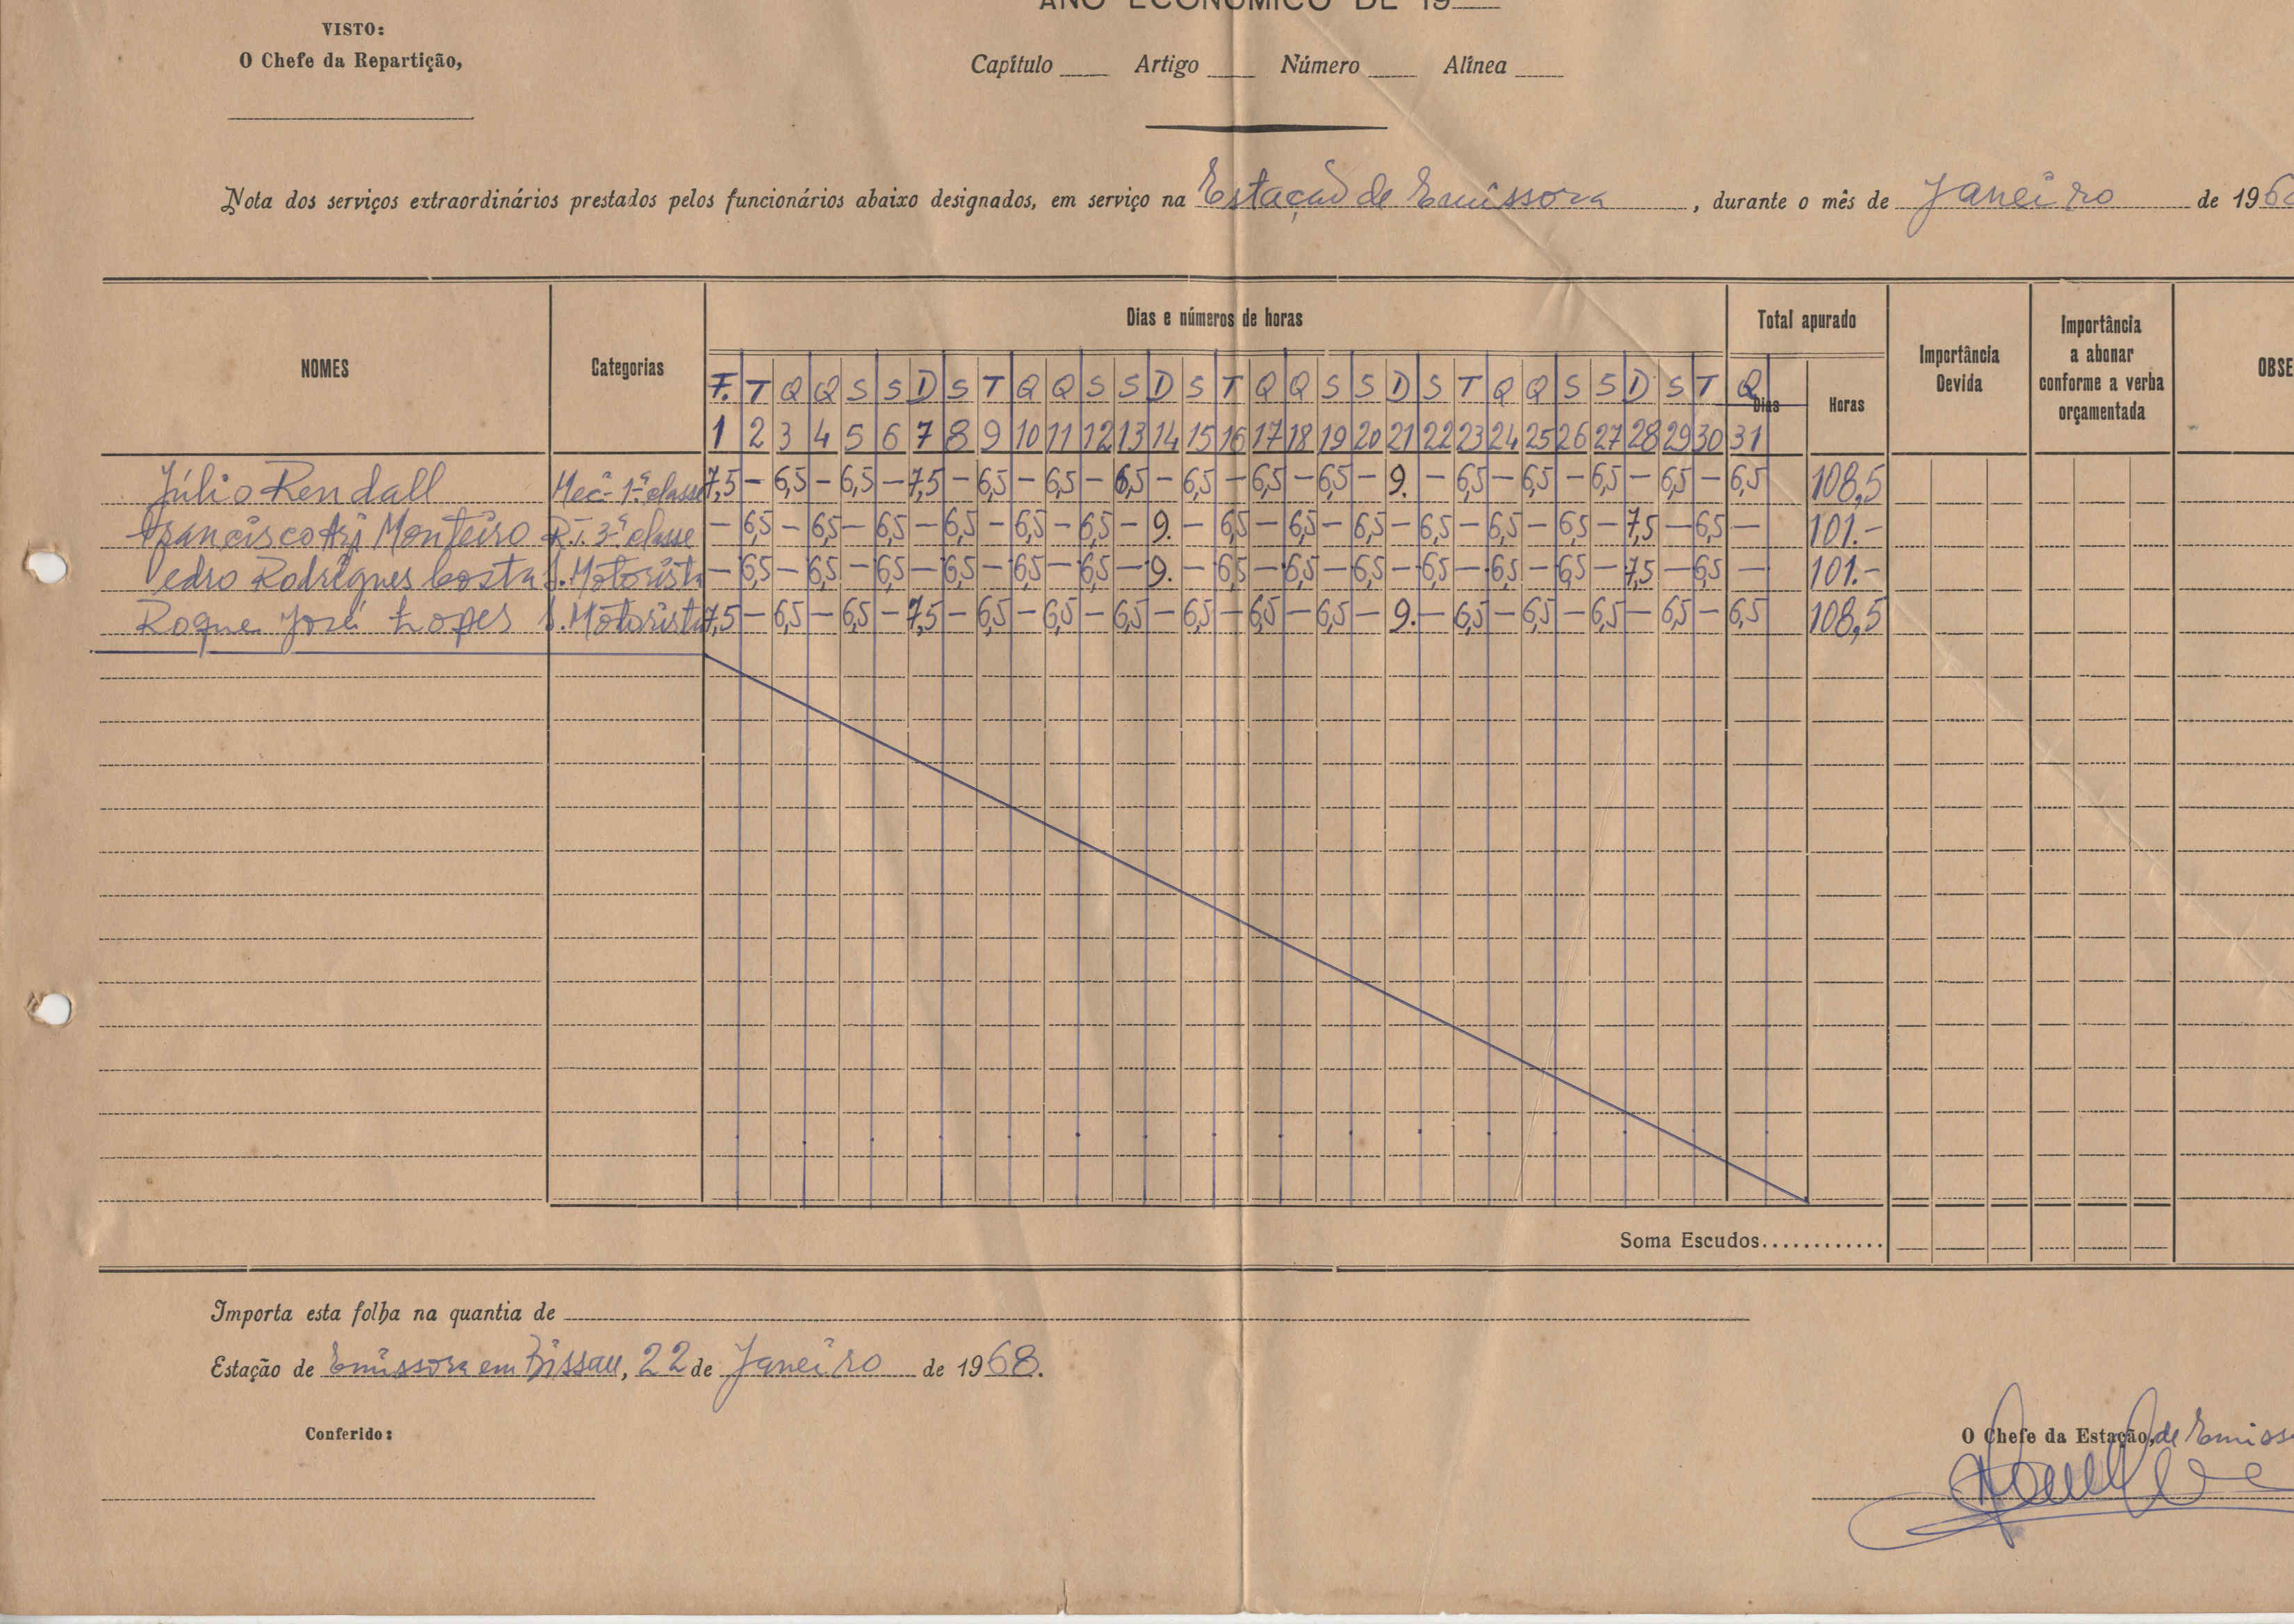 ANO ECONÓMICO DE 19
VISTO:
O Chefe da Repartição,
Capítulo Artigo Número Alínea
Nota dos serviços extraordinários prestados pelos funcionários abaixo designados, em serviço na Estação de Emissora, durante o mês de Janeiro de 196
NOMES Categorias Dias e números de horas Total apurado Importância Devida Importância a abonar conforme a verba orçamentada OBSE
F. T Q Q S S D S T Q Q S S D S T Q Q S S D S T Q Q S S D S T Q Dias Horas
1 2 3 4 5 6 7 8 9 10 11 12 13 14 15 16 17 18 19 20 21 22 23 24 25 26 27 28 29 30 31
Júlio Rendall Mecº 1ª classe 7,5 – 6,5 – 6,5 – 7,5 – 6,5 – 6,5 – 6,5 – 6,5 – 6,5 – 6,5 – 9. – 6,5 – 6,5 – 6,5 – 6,5 – 6,5 108,5
Francisco Monteiro R.T. 3ª classe – 6,5 – 6,5 – 6,5 – 6,5 – 6,5 – 6,5 – 9. – 6,5 – 6,5 – 6,5 – 6,5 – 6,5 – 6,5 – 7,5 – 6,5 – 101.–
Pedro Rodrigues Costa S. Motorista – 6,5 – 6,5 – 6,5 – 6,5 – 6,5 – 6,5 – 9. – 6,5 – 6,5 – 6,5 – 6,5 – 6,5 – 6,5 – 7,5 – 6,5 – 101.–
Roque José Lopes S. Motorista 7,5 – 6,5 – 6,5 – 7,5 – 6,5 – 6,5 – 6,5 – 6,5 – 6,5 – 6,5 – 9. – 6,5 – 6,5 – 6,5 – 6,5 – 6,5 108,5
Soma Escudos............
Importa esta folha na quantia de
Estação de Emissora em Bissau, 22 de Janeiro de 1968.
Conferido:
O Chefe da Estação, de Emiss